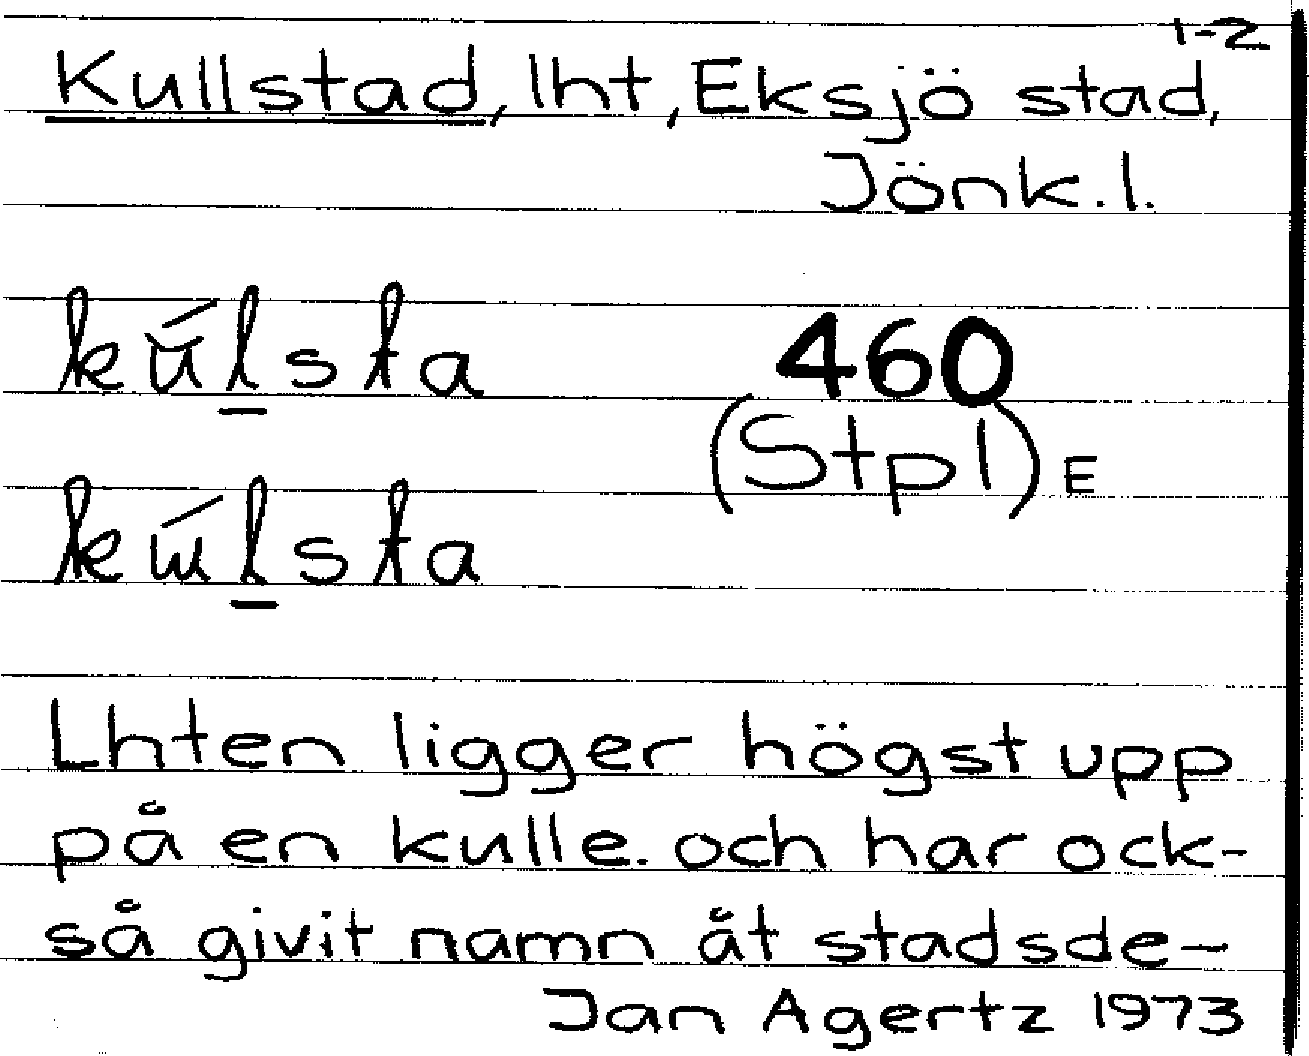 1-2
Kullstad, lht, Eksjö stad,
Jönk. l.
kúl̲sta 460
(Stpl) E
kɯ́l̲sta
Lhten ligger högst upp
på en kulle. och har ock-
så givit namn åt stadsde-
Jan Agertz 1973